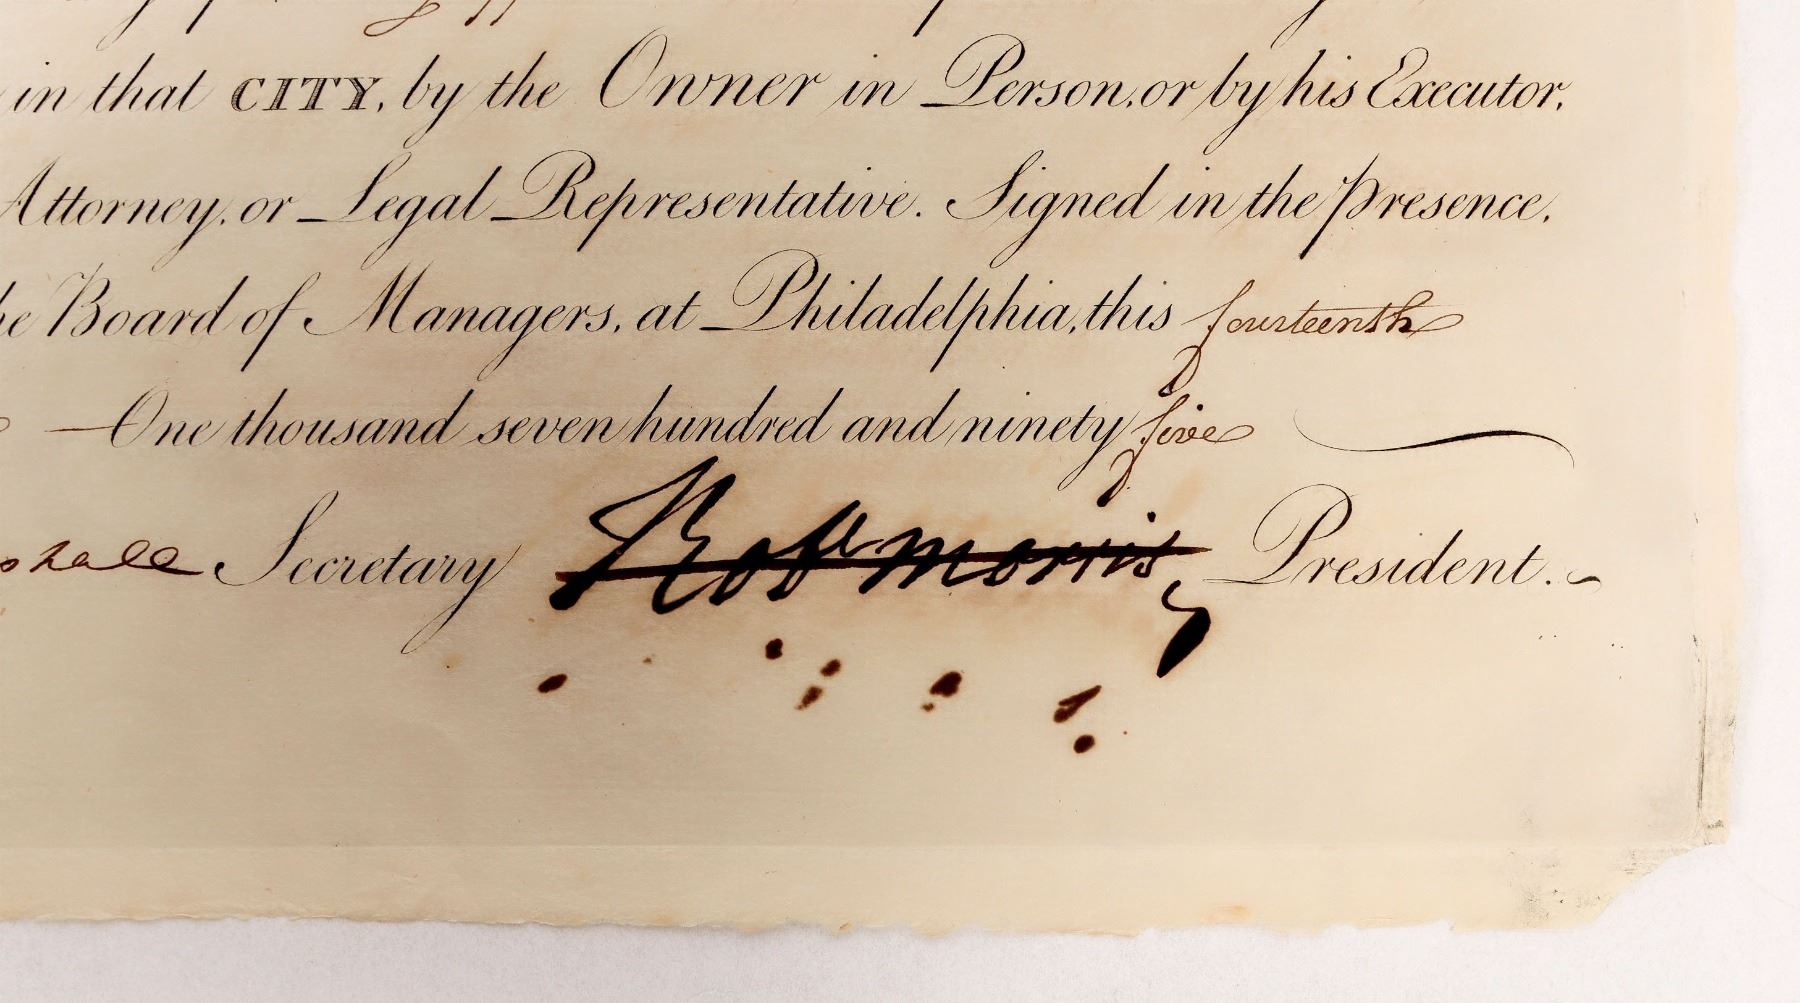 in that CITY, by the Owner in Person, or by his Executor,
Attorney, or Legal Representative. Signed in the Presence,
he Board of Managers, at Philadelphia, this fourteenth
One thousand seven hundred and ninety five
Secretary Robt Morris President.